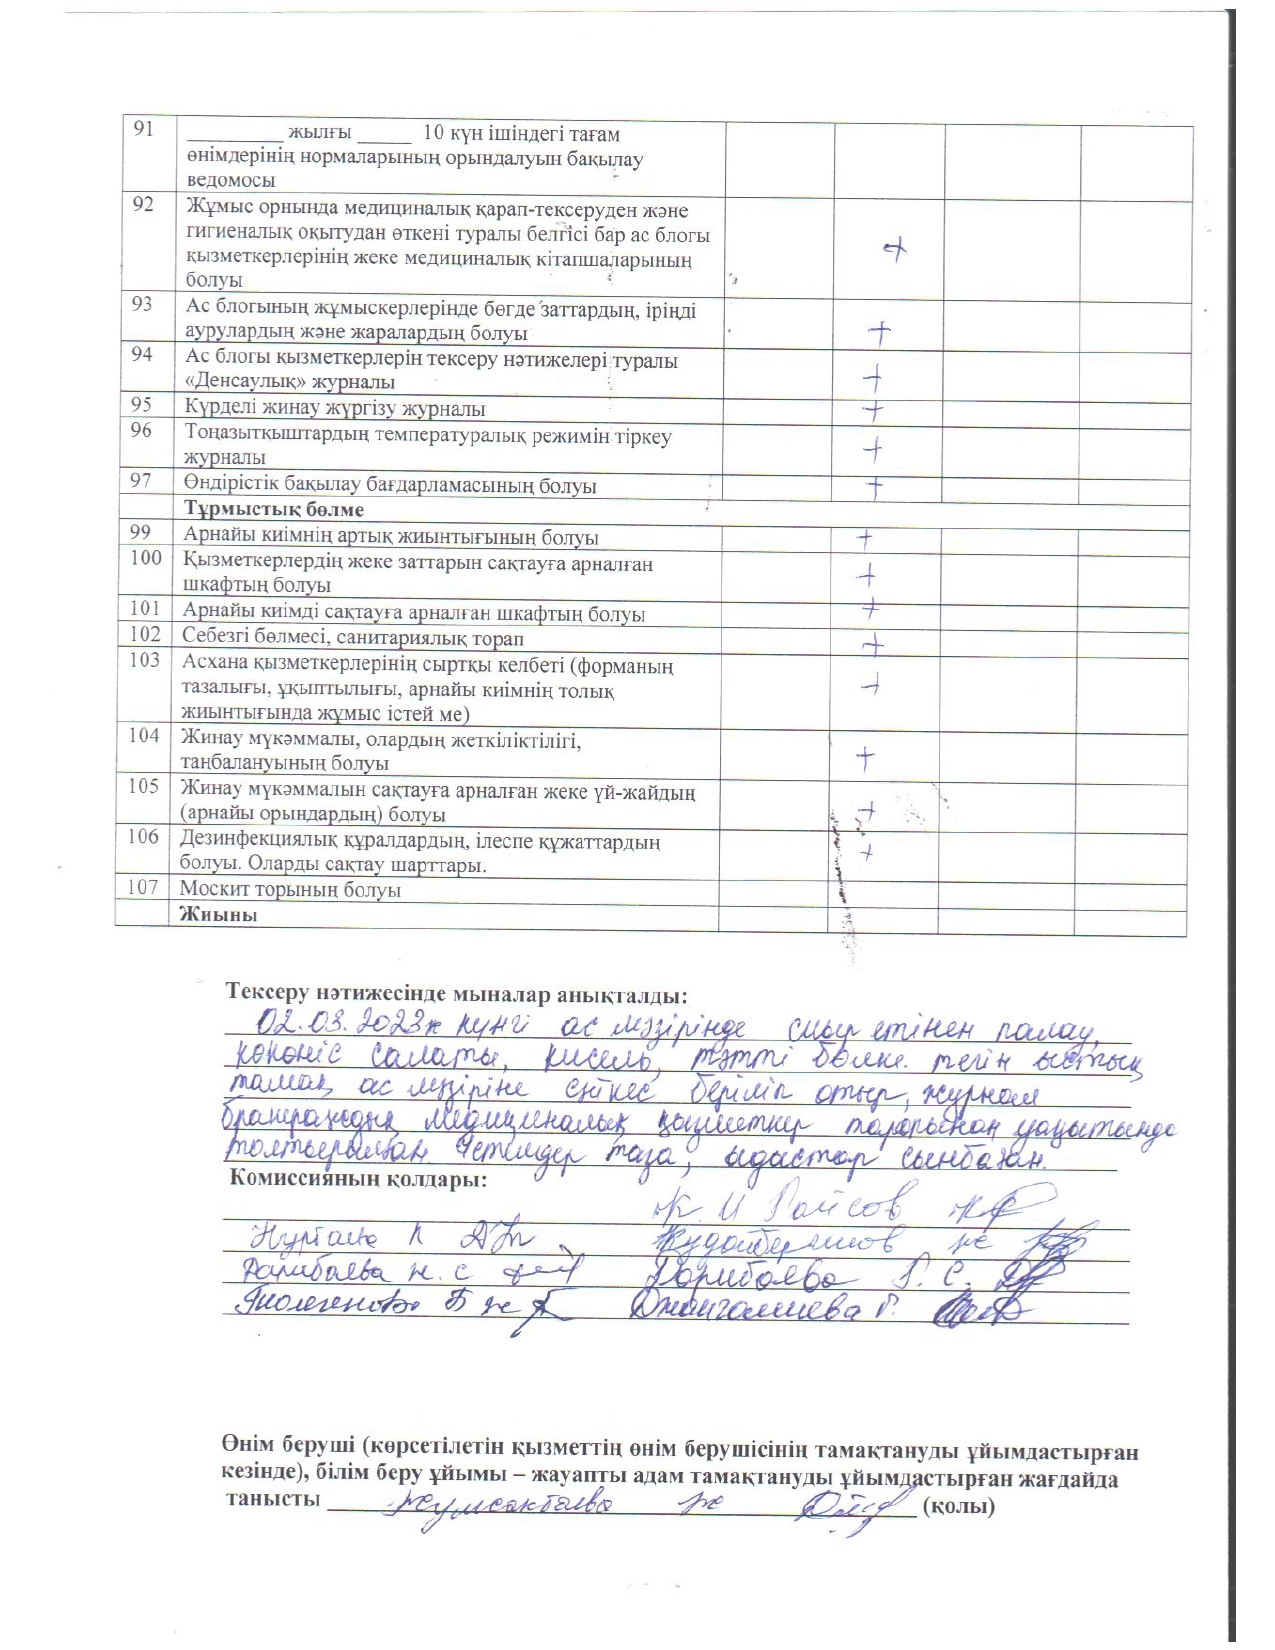 91 _________ жылғы _____ 10 күн ішіндегі тағам
өнімдерінің нормаларының орындалуын бақылау
ведомосы
92 Жұмыс орнында медициналық қарап-тексеруден және
гигиеналық оқытудан өткені туралы белгісі бар ас блогы +
қызметкерлерінің жеке медициналық кітапшаларының
болуы
93 Ас блогының жұмыскерлерінде бөгде заттардың, іріңді
аурулардың және жаралардың болуы +
94 Ас блогы қызметкерлерін тексеру нәтижелері туралы
«Денсаулық» журналы +
95 Күрделі жинау жүргізу журналы +
96 Тоңазытқыштардың температуралық режимін тіркеу
журналы +
97 Өндірістік бақылау бағдарламасының болуы +
Тұрмыстық бөлме
99 Арнайы киімнің артық жиынтығының болуы +
100 Қызметкерлердің жеке заттарын сақтауға арналған
шкафтың болуы +
101 Арнайы киімді сақтауға арналған шкафтың болуы +
102 Себезгі бөлмесі, санитариялық торап +
103 Асхана қызметкерлерінің сыртқы келбеті (форманың
тазалығы, ұқыптылығы, арнайы киімнің толық +
жиынтығында жұмыс істей ме)
104 Жинау мүкәммалы, олардың жеткіліктілігі,
таңбалануының болуы +
105 Жинау мүкәммалын сақтауға арналған жеке үй-жайдың
(арнайы орындардың) болуы +
106 Дезинфекциялық құралдардың, ілеспе құжаттардың
болуы. Оларды сақтау шарттары. +
107 Москит торының болуы
Жиыны
Тексеру нәтижесінде мыналар анықталды:
02.03.2023ж күнгі ас мәзірінде сиыр етінен палау,
көкөніс салаты, кисель, тәтті бөлке. тегін ыстық
тамақ ас мәзіріне сәйкес беріліп отыр, журнал
бракераждық медициналық қызметкер тарапынан уақытында
толтырылған. таза, ыдыстар сынбаған.
Комиссияның қолдары:
Ж. И
Нургали К Кудайбергенов Ж
Дарибаева Ж. С Дарибаева Г. С.
Тюлегенова Б Ж Джангалиева Г.
Өнім беруші (көрсетілетін қызметтің өнім берушісінің тамақтануды ұйымдастырған
кезінде), білім беру ұйымы – жауапты адам тамақтануды ұйымдастырған жағдайда
танысты Жумсакбаева Ж (қолы)